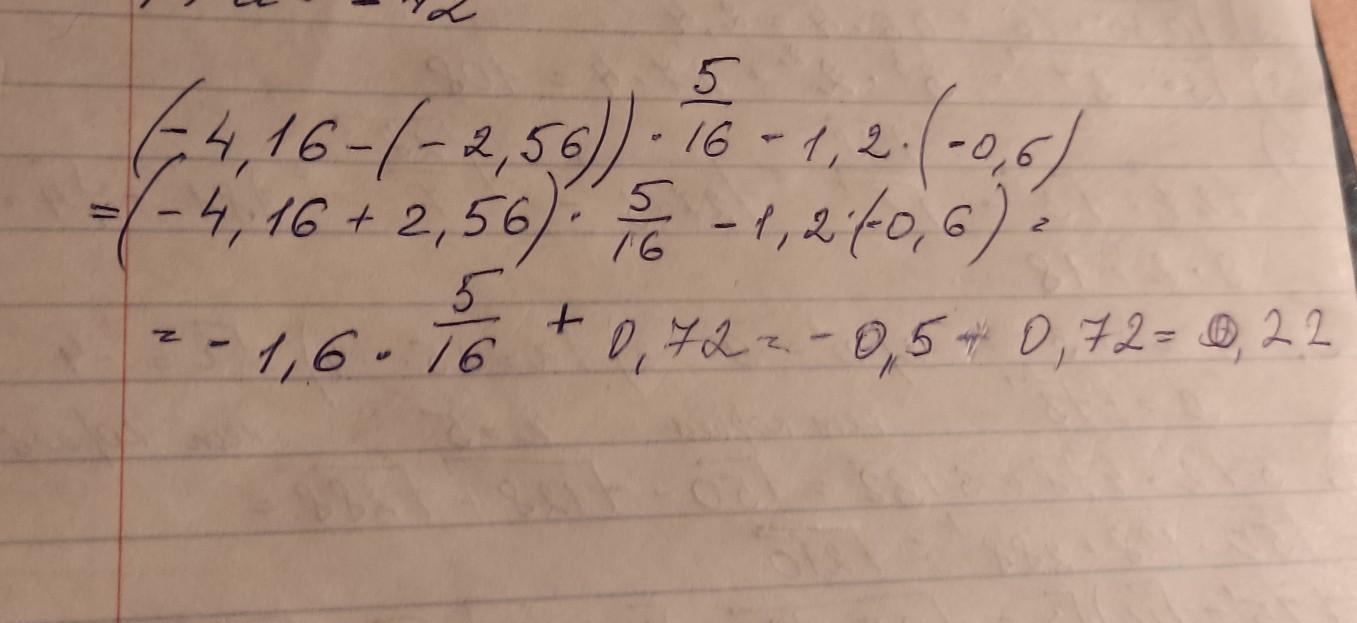 (-4,16-(-2,56))·5/16-1,2·(-0,6)
=(-4,16+2,56)·5/16-1,2·(-0,6)=
=-1,6·5/16+0,72=-0,5+0,72=0,22